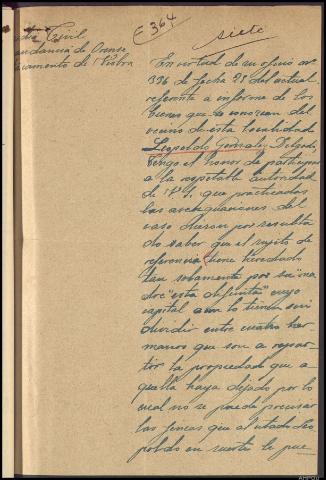 E 364
siete
Civil
Comandancia de Orense
En virtud de su oficio nº
336 de fecha 25 del actual
referente a informe de los
bienes que se conozcan del
vecino de esta localidad
Leopoldo Gonzalez Delgado,
tengo el honor de participar
a la respetable autoridad
de V.S. que practicadas
las averiguaciones del
caso dieron por resulta
do saber que el sujeto de
referencia tiene heredado
tan solamente por su ma
dre "esta difunta" cuyo
capital aun lo tienen sin
dividir entre cuatro her-
manos que son a repar-
tir la propiedad que a-
quella haya dejado por lo
cual no se puede precisar
las fincas que al citado Leo
poldo en suerte le pue-
AHPOU